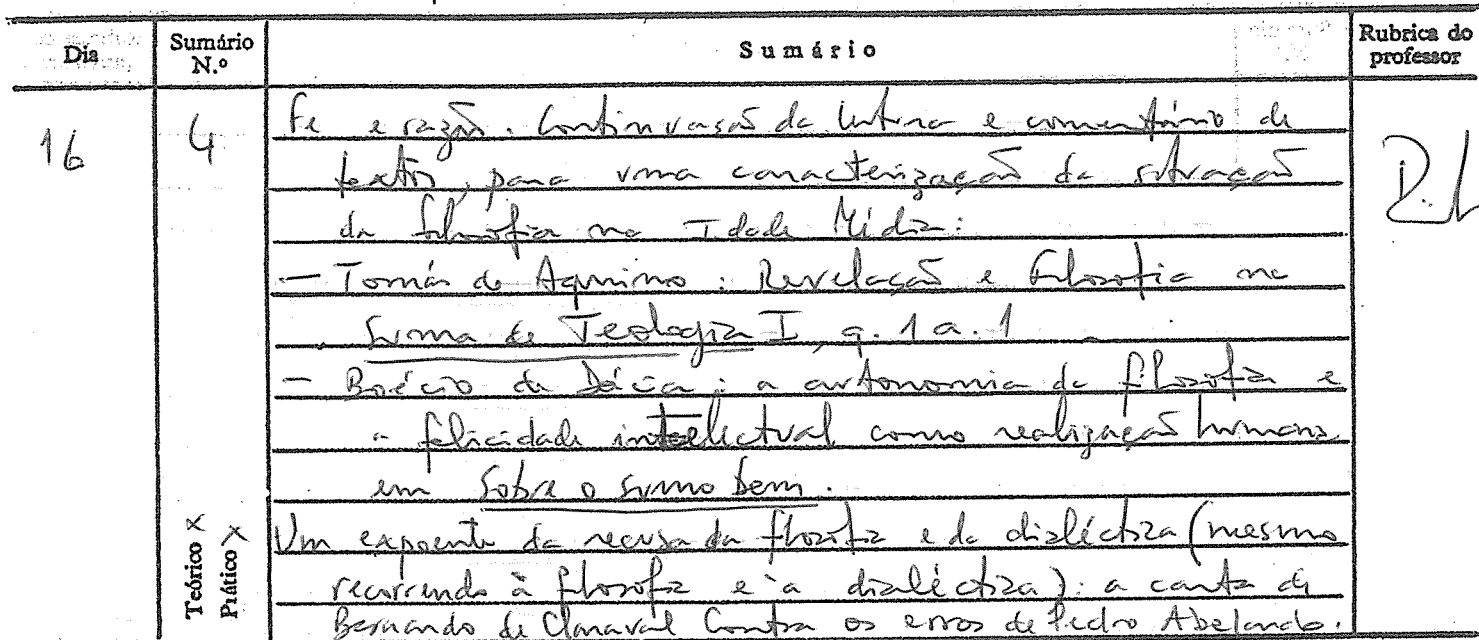 Dia
Sumário N.º
Sumário
Rubrica do professor
16
4
Fé e razão. Continuação da leitura e comentário de
textos, para uma caracterização da situação
da filosofia na Idade Média:
— Tomás de Aquino: Revelação e Filosofia na
Suma de Teologia I, q. 1 a. 1
— Boécio da Dácia: a autonomia da filosofia e
a felicidade intelectual como realização humana
em Sobre o sumo bem.
Um expoente da recusa da filosofia e da dialéctica (mesmo
recorrendo à filosofia e à dialéctica): a carta de
Bernardo de Claraval Contra os erros de Pedro Abelardo.
Teórico X
Prático X